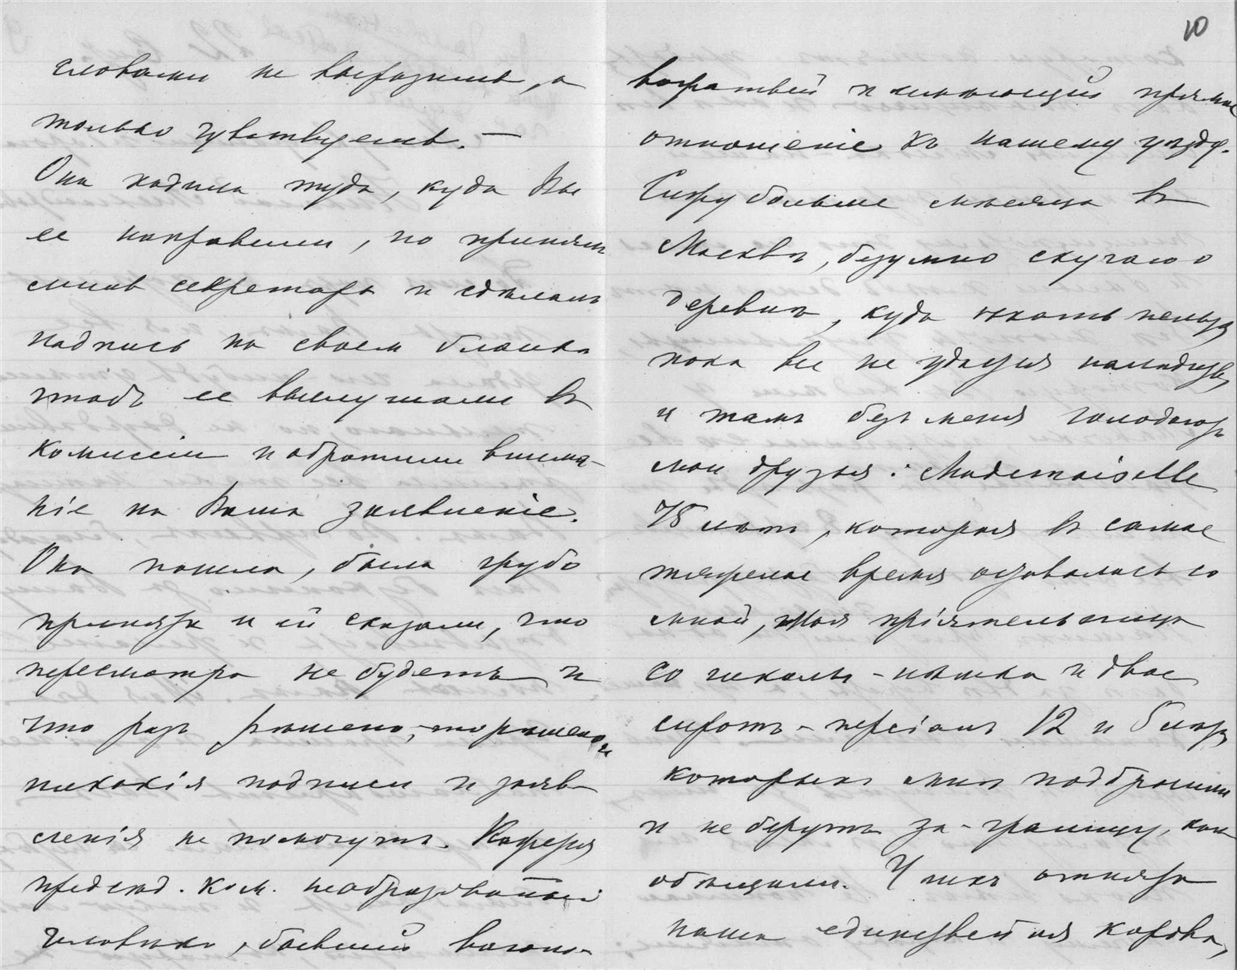 словами не выразишь, а
только чувствуешь. —
Она ходила туда, куда Вы
ее направили, но принялъ
секретарь и сдѣлалъ
надпись на своем бланкѣ
чтобъ ее выслушали въ
Комиссіи и обратили внима-
ніе на Ваше заявленіе.
Она пошла, была грубо
принята и ей сказали, что
пересмотра не будетъ и
что разъ рѣшено, — то рѣшено и
никакія подписи и заяв-
ленія не помогутъ.
предсѣд. ком. необразованный
человѣкъ, бывшій
и имѣющій прямое
отношеніе къ нашему уѣзду.
Сижу больше мѣсяца въ
Москвѣ, безумно скучаю о
деревнѣ, куда ѣхать нельзя
пока все не удастся наладить,
и тамъ безъ меня голодаютъ
мои друзья: Mademoiselle
75 лѣтъ, которая въ самое
тяжелое время оставалась со
мной, моя пріятельница
со школы - нѣмка и двое
сиротъ - персіанъ 12 и 6 лѣтъ
которыхъ мнѣ подбросили
и не берутъ за-границу, какъ
обѣщали. У нихъ отнята
наша единственная корова,
10